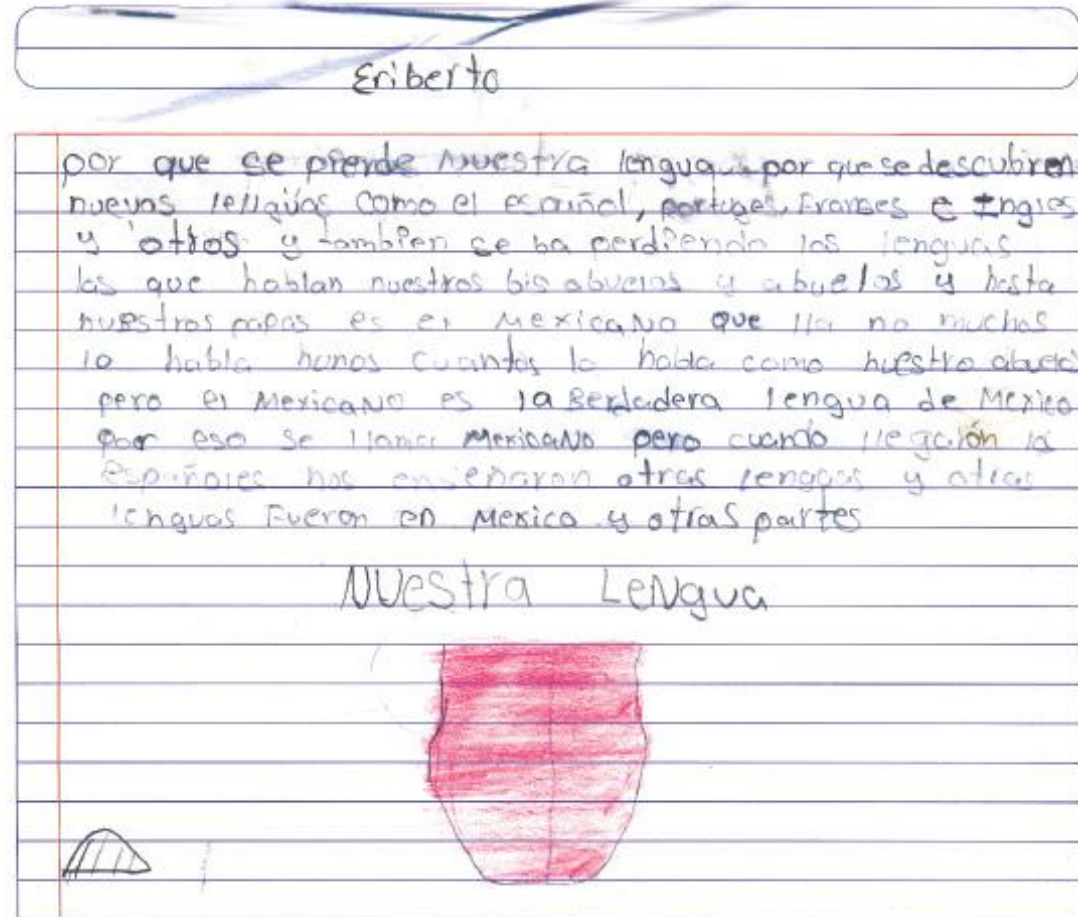 Eriberto
por que se pierde Nuestra lengua por que se descubren
nuevas lenguas como el español, portuges, Franses e Ingles
y otros y tambien se ba perdiendo las lenguas
las que hablan nuestros bis abuelos y abuelos y hasta
nuestros papas es el MexicaNo que lla no muchos
lo habla hunos cuantos lo habla como nuestro abuelo
pero el MexicaNo es la Berdadera lengua de Mexico
por eso se llama MexicaNo pero cuando llegaron los
españoles nos enseñaron otras lenguas y otras
lenguas Fueron en Mexico y otras partes
NUestra LeNgua